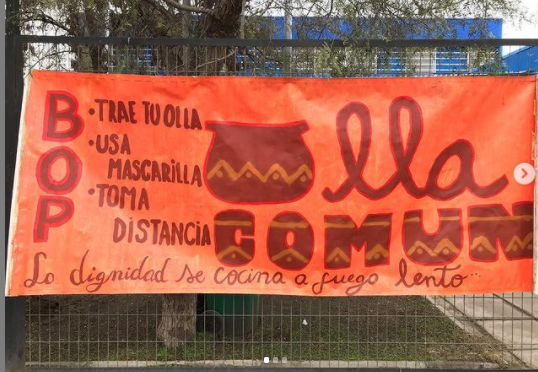 BOP
• TRAE TU OLLA
• USA
MASCARILLA
• TOMA
DISTANCIA
lla
COMUN
La dignidad se cocina a fuego lento...